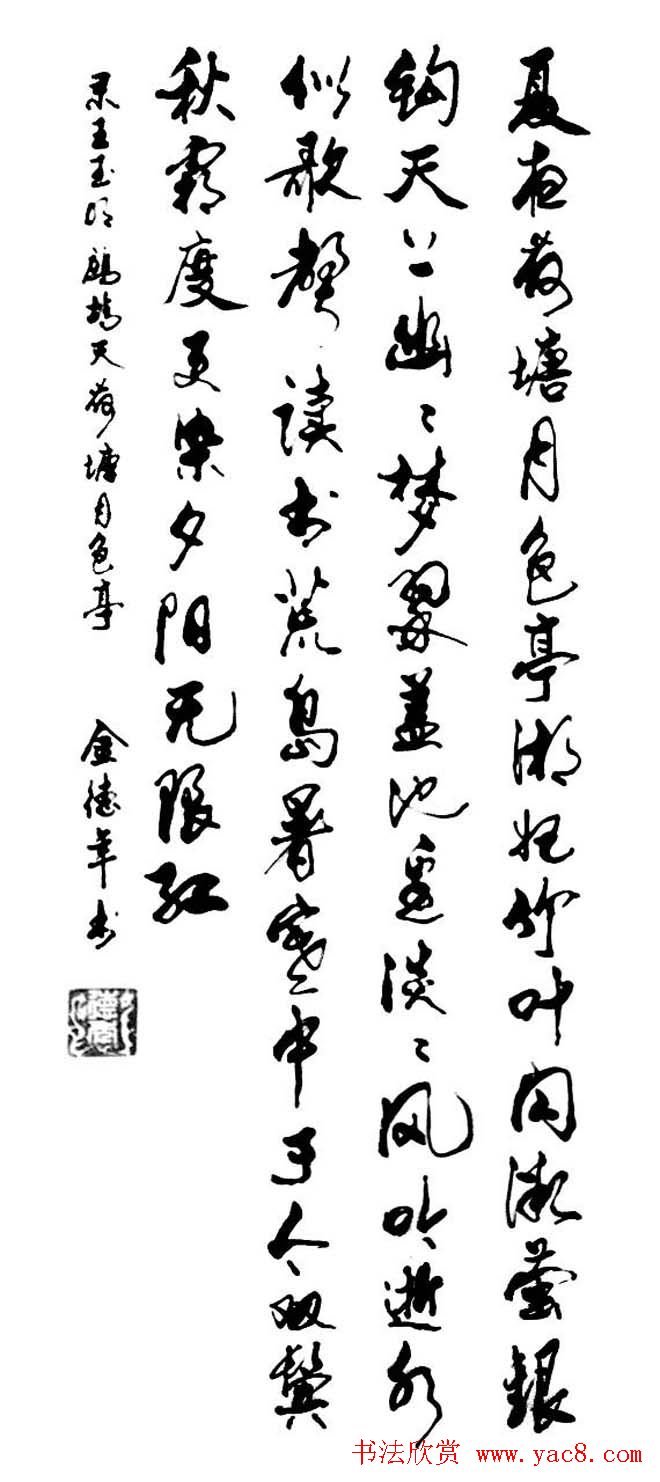 夏夜荷塘月色亭湘妃竹叶闪微萤银
钩天上幽幽梦翠盖池边淡淡风吟逝水
似歌聲读书荒岛暑寒中于今双鬓
秋霜度更樂夕阳无限红
录王玉明鹧鸪天荷塘月色亭 金德年书
书法欣赏 www.yac8.com